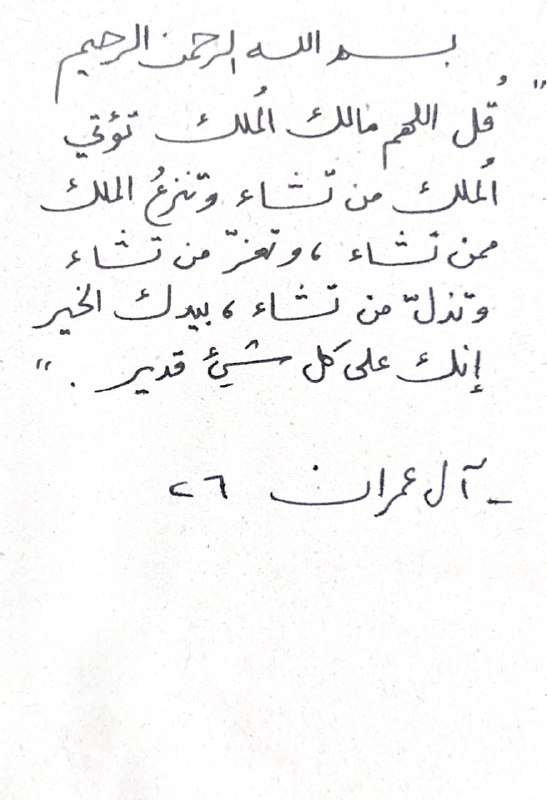 بسم الله الرحمن الرحيم
" قُل اللهم مالك المُلك تؤتي
المُلك من تشاء وتنزعُ الملك
ممن تشاء ، وتعزّ من تشاء
وتذلّ من تشاء ، بيدك الخير
إنك على كل شيئ قدير . "
- آل عمران ٢٦